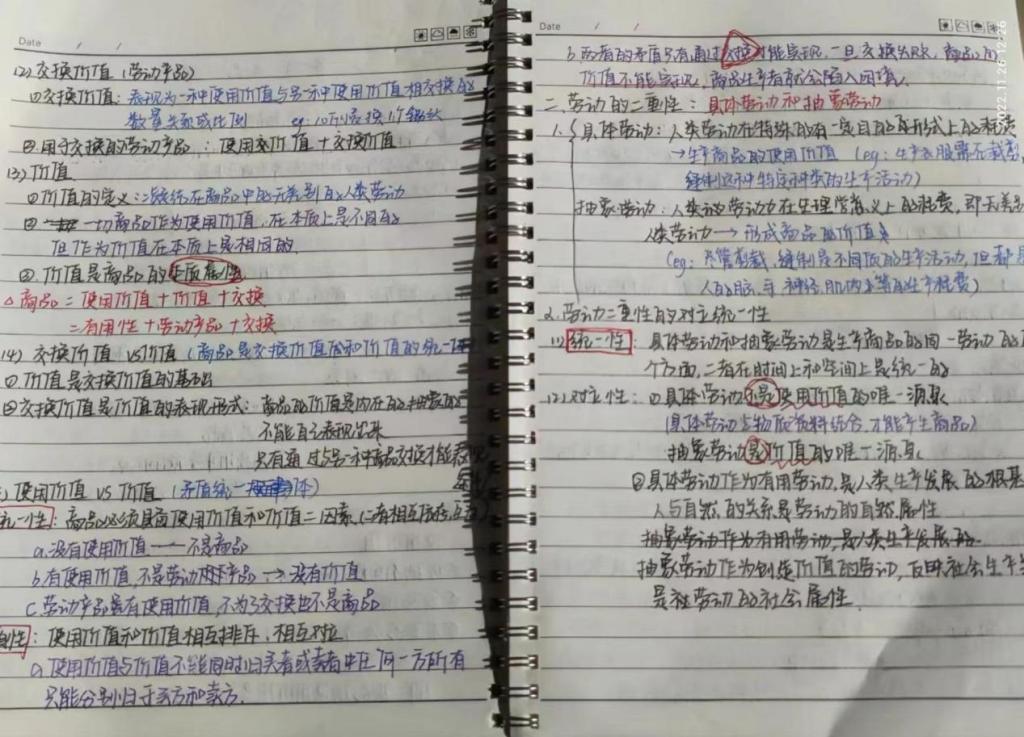 Date / /
(2) 交换价值 (劳动产品)
①交换价值: 表现为一种使用价值与另一种使用价值相交换的
数量关系或比例 eg:
②用于交换的劳动产品 ∴ 使用价值 + 交换价值
(3) 价值
①价值的定义: 凝结在商品中的无差别的人类劳动
② 一切商品作为使用价值, 在本质上是不同的
但作为价值在本质上是相同的.
③ 价值是商品的本质属性
△ 商品 = 使用价值 + 价值 + 交换
= 有用性 + 劳动产品 + 交换
(4) 交换价值 VS 价值 (商品是交换价值和价值的统一体
①价值是交换价值的基础
②交换价值是价值的表现形式: 商品的价值是内在的抽象的
不能自己表现出来
只有通过与另一种商品交换才能表现
使用价值 VS 价值 (矛盾统一体)
统一性: 商品必须具备使用价值和价值二因素 (二者相互依存
a.没有使用价值 → 不是商品
b.有使用价值, 不是劳动产品 → 没有价值
c.劳动产品虽有使用价值, 不为了交换也不是商品
使用价值和价值相互排斥, 相互对立
a.使用价值与价值不能同时归买者或卖者中任何一方所有
只能分别归于买方和卖方.
Date / /
2022.11.26 12:26
b.两者的矛盾只有通过交换才能实现, 一旦交换失败, 商品的
价值不能实现, 商品生产者就会陷入困境.
二、劳动的二重性: 具体劳动和抽象劳动
1. 具体劳动: 人类劳动在特殊的有一定目的的形式上的耗费
→生产商品的使用价值 (eg: 生产衣服需在裁剪,
缝制这种特定种类的生产活动)
抽象劳动: 人类的劳动力在生理学意义上的耗费, 即无差别
人类劳动 → 形成商品的价值
(eg: 尽管剪裁, 缝制是不同质的生产活动, 但都是
人的脑, 手, 神经, 肌肉等的生产耗费)
2.劳动二重性的对立统一性
(1) 统一性: 具体劳动和抽象劳动是生产商品的同一劳动的
个方面, 二者在时间上和空间上是统一的
(2) 对立性: ①具体劳动不是使用价值的唯一源泉
(具体劳动与物质资料结合, 才能产生商品)
抽象劳动是价值的唯一源泉
②具体劳动作为有用劳动, 是人类生产发展的根基
人与自然的关系是劳动的自然属性
抽象劳动作为有用劳动, 是人类生产发展的
抽象劳动作为创造价值的劳动, 反映社会生产
是社劳动的社会属性.